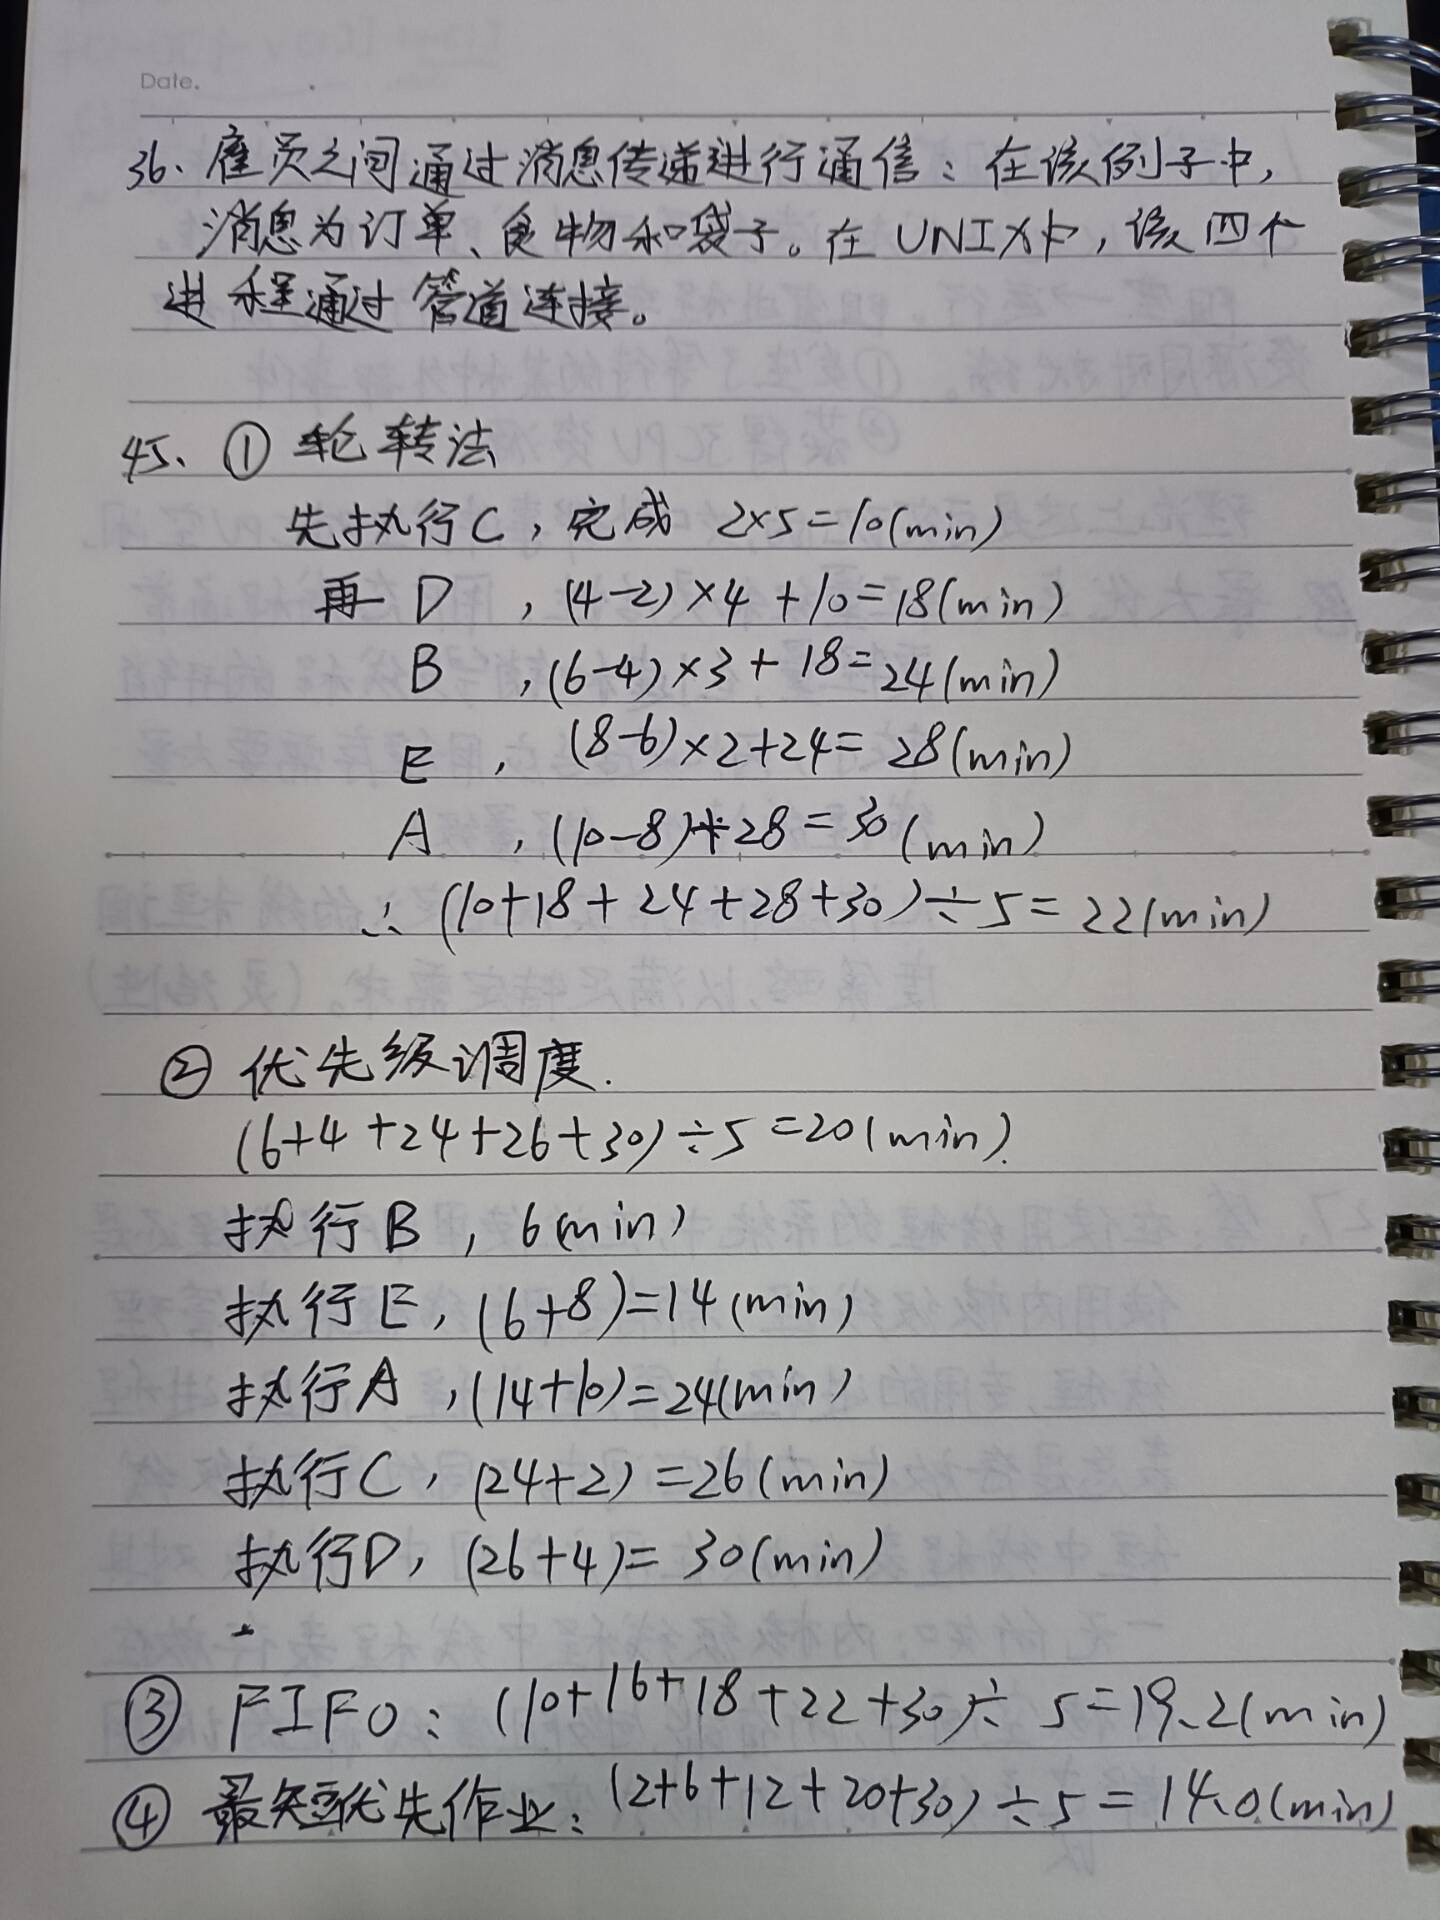 Date.
36、雇员之间通过消息传递进行通信：在该例子中，
消息为订单、食物和袋子。在UNIX中，该四个
进程通过管道连接。
45、① 轮转法
先执行C，完成 2×5=10(min)
再 D ，(4-2)×4+10=18(min)
B ，(6-4)×3+18=24(min)
E ， (8-6)×2+24=28(min)
A ，(10-8)+28=30(min)
∴ (10+18+24+28+30)÷5=22(min)
② 优先级调度.
(6+4+24+26+30)÷5=20(min).
执行B，6(min)
执行E，(6+8)=14(min)
执行A，(14+10)=24(min)
执行C，(24+2)=26(min)
执行D，(26+4)=30(min)
③ FIFO：(10+16+18+22+30)÷5=19.2(min)
④ 最短优先作业：(2+6+12+20+30)÷5=14.0(min)